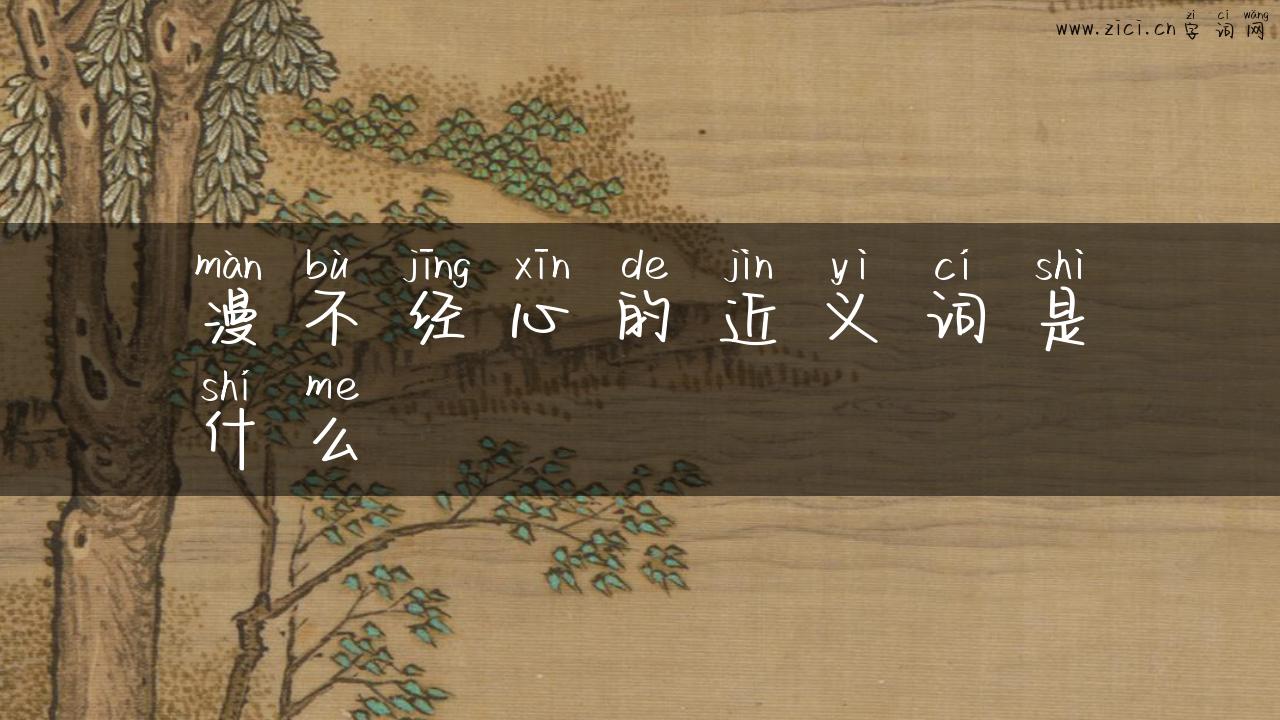 zì cí wǎng
www.zici.cn 字词网
màn bù jīng xīn de jìn yì cí shì
漫不经心的近义词是
shí me
什么